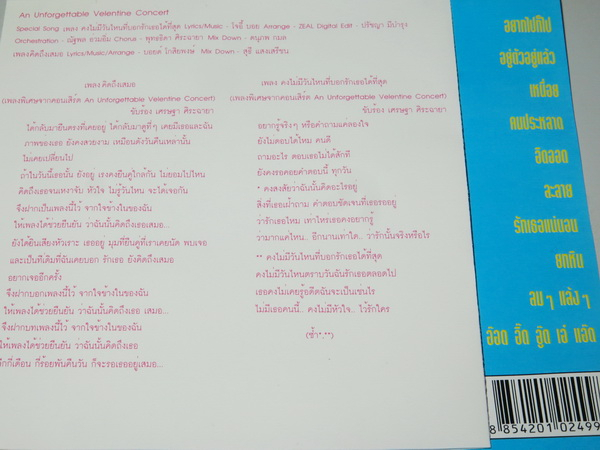 An Unforgettable Velentine Concert
Special Song เพลง คงไม่มีวันไหนที่บอกรักเธอได้ที่สุด Lyrics/Music - โจอี้ บอย Arrange - ZEAL Digital Edit - ปรัชญา มีบำรุง
Orchestration - ณัฐพล อวมอิ่ม Chorus - พุทธธิดา ศิระฉายา Mix Down - สนุภพ กมล
เพลงคิดถึงเสมอ Lyrics/Music/Arrange - บอยด์ โกสิยพงษ์ Mix Down - สุธี แสงเสรีชน
เพลงคิดถึงเสมอ
(เพลงพิเศษจากคอนเสิร์ต An Unforgettable Velentine Concert)
ขับร้อง เศรษฐา ศิระฉายา
ได้กลับมายืนตรงที่เคยอยู่ ได้กลับมาดูที่ๆ เคยมีเธอและฉัน
ภาพของเธอ ยังคงสวยงาม เหมือนดังวันคืนเหล่านั้น
ไม่เคยเปลี่ยนไป
ถ้าในวันนี้เธอนั้น ยังอยู่ เธอคงยืนดูใกล้กัน ไม่ยอมไปไหน
คิดถึงเธอจนเหงาจับ หัวใจ ไม่รู้วันไหน จะได้เจอกัน
จึงฝากเป็นเพลงนี้ไว้ จากใจข้างในของฉัน
ให้เพลงได้ช่วยยืนยัน ว่าฉันนั้นคิดถึงเธอเสมอ...
ยังได้ยินเสียงหัวเราะ เธออยู่ มุมที่ยืนดูที่เราเคยนัด พบเจอ
และเป็นที่เดิมที่ฉันเคยบอก รักเธอ ยังคิดถึงเสมอ
อยากเจออีกครั้ง
จึงฝากบอกเพลงนี้ไว้ จากใจข้างในของฉัน
ให้เพลงได้ช่วยยืนยัน ว่าฉันนั้นคิดถึงเธอ เสมอ...
จึงฝากบทเพลงนี้ไว้ จากใจข้างในของฉัน
ให้เพลงได้ช่วยยืนยัน ว่าฉันนั้นคิดถึงเธอ
อีกกี่เดือน กี่ร้อยพันคืนวัน ก็จะรอเธออยู่เสมอ...
เพลง คงไม่มีวันไหนที่บอกรักเธอได้ที่สุด
(เพลงพิเศษจากคอนเสิร์ต An Unforgettable Velentine Concert)
ขับร้อง เศรษฐา ศิระฉายา
อยากรู้จริงๆ หรือคำถามแคลงใจ
ยังไม่ตอบได้ไหม คนดี
ถามอะไร ตอบเธอไม่ได้สักที
ยังคงรอคอยคำตอบนี้ ทุกวัน
* คงสงสัยว่าฉันนั้นคิดอะไรอยู่
สิ่งที่เธอเฝ้าถาม คำตอบชัดเจนที่เธอรออยู่
ว่ารักเธอไหม เท่าไหร่เธอคงอยากรู้
ว่ามากแค่ไหน.. อีกนานเท่าใด.. ว่ารักนั้นจริงหรือไร
** คงไม่มีวันไหนที่บอกรักเธอได้ที่สุด
คงไม่มีวันไหนตราบวันฉันรักเธอตลอดไป
เธอคงไม่เคยรู้อดีตฉันจะเป็นเช่นไร
ไม่มีเธอคนนี้.. คงไม่มีหัวใจ.. ไว้รักใคร
(ซ้ำ*,**)
อยากไปก็ไป
อยู่ตัวอยู่แล้ว
เหนื่อย
คนประหลาด
ฮิดฮอด
ละลาย
รักเธอแน่นอน
ยกหิน
ลม ๆ แล้ง ๆ
อ๊อด อิ๊ด อู๊ด เอ๋ แอ๊ด
8 854201 02499